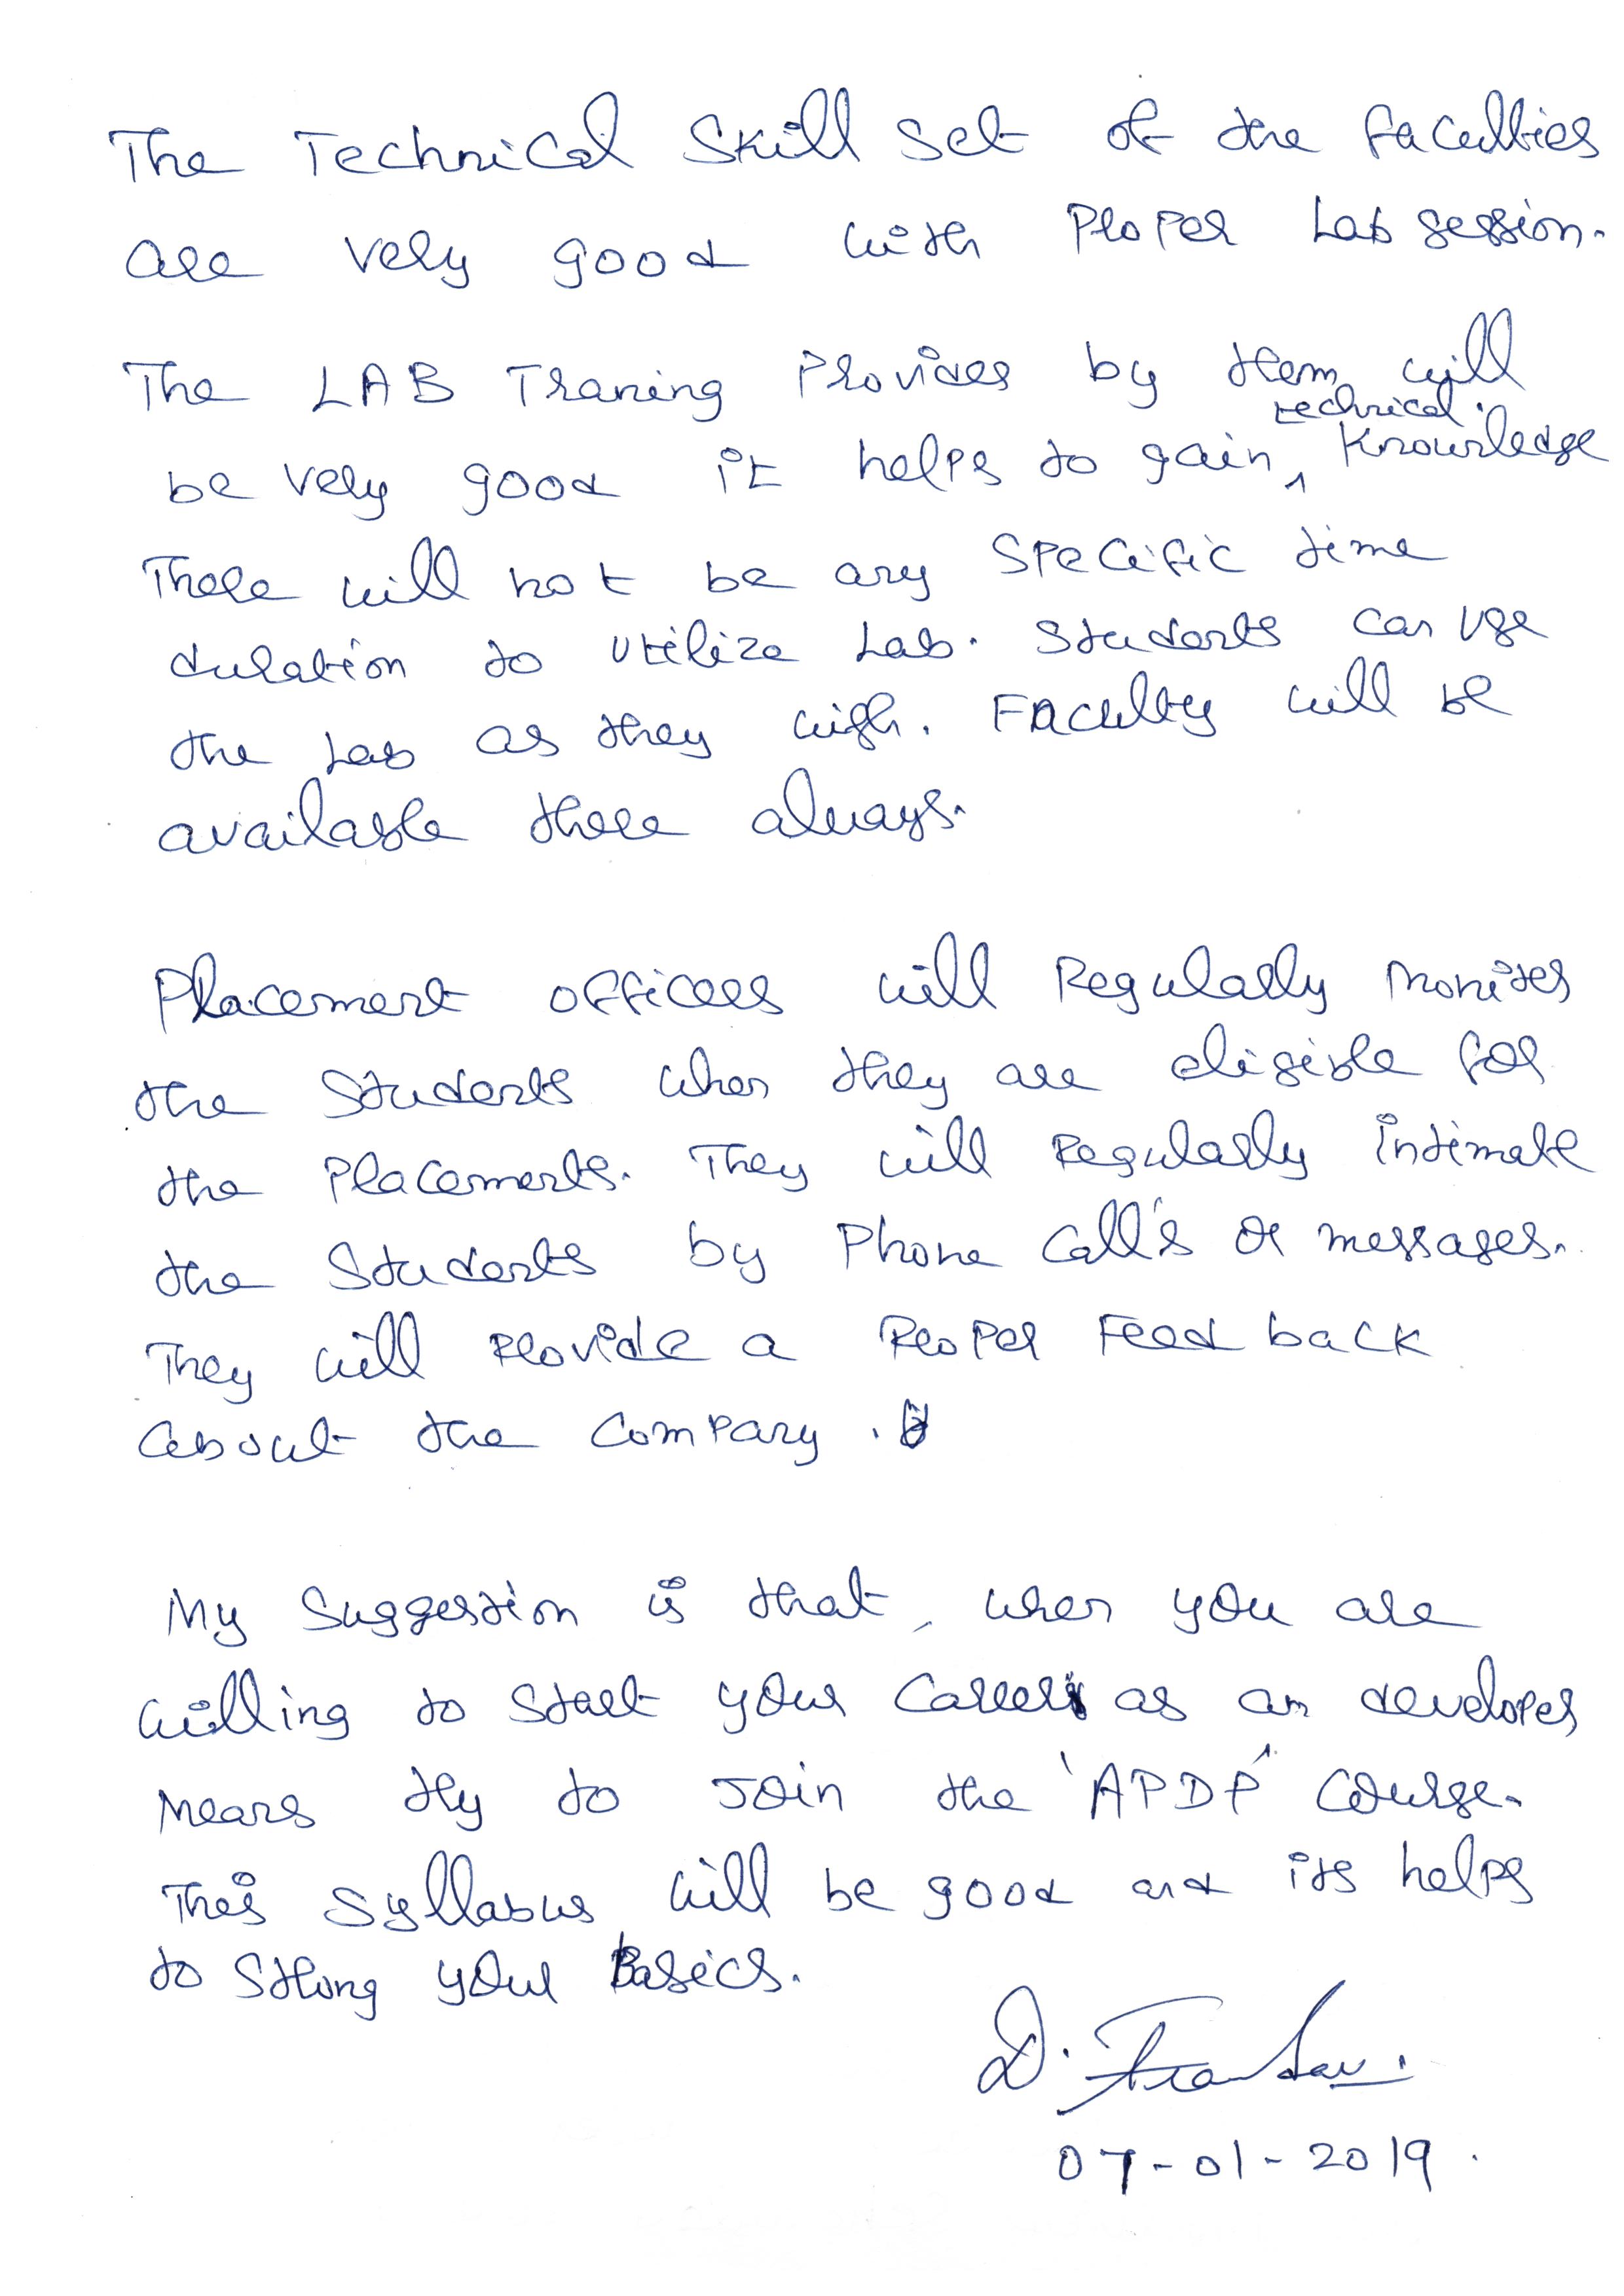 The Technical Skill Set of the faculties
are very good with Proper Lab session.
The LAB Traning Provides by them will
be very good it helps to gain technical Knowledge
There will not be any Specific time
duration to utilize Lab. Students can use
the Lab as they wish. Faculty will be
available there always.
Placement officers will Regularly Moniter
the Students when they are eligible for
the Placements. They will Regularly intimate
the Students by Phone Call's or messages.
They will Provide a Proper Feed back
about the Company.
My Suggestion is that, when you are
willing to Start your Career as an developer
Means try to Join the 'APDP' Course.
This Syllabus will be good and its helps
to Strong your Basics.
D.
07-01-2019.